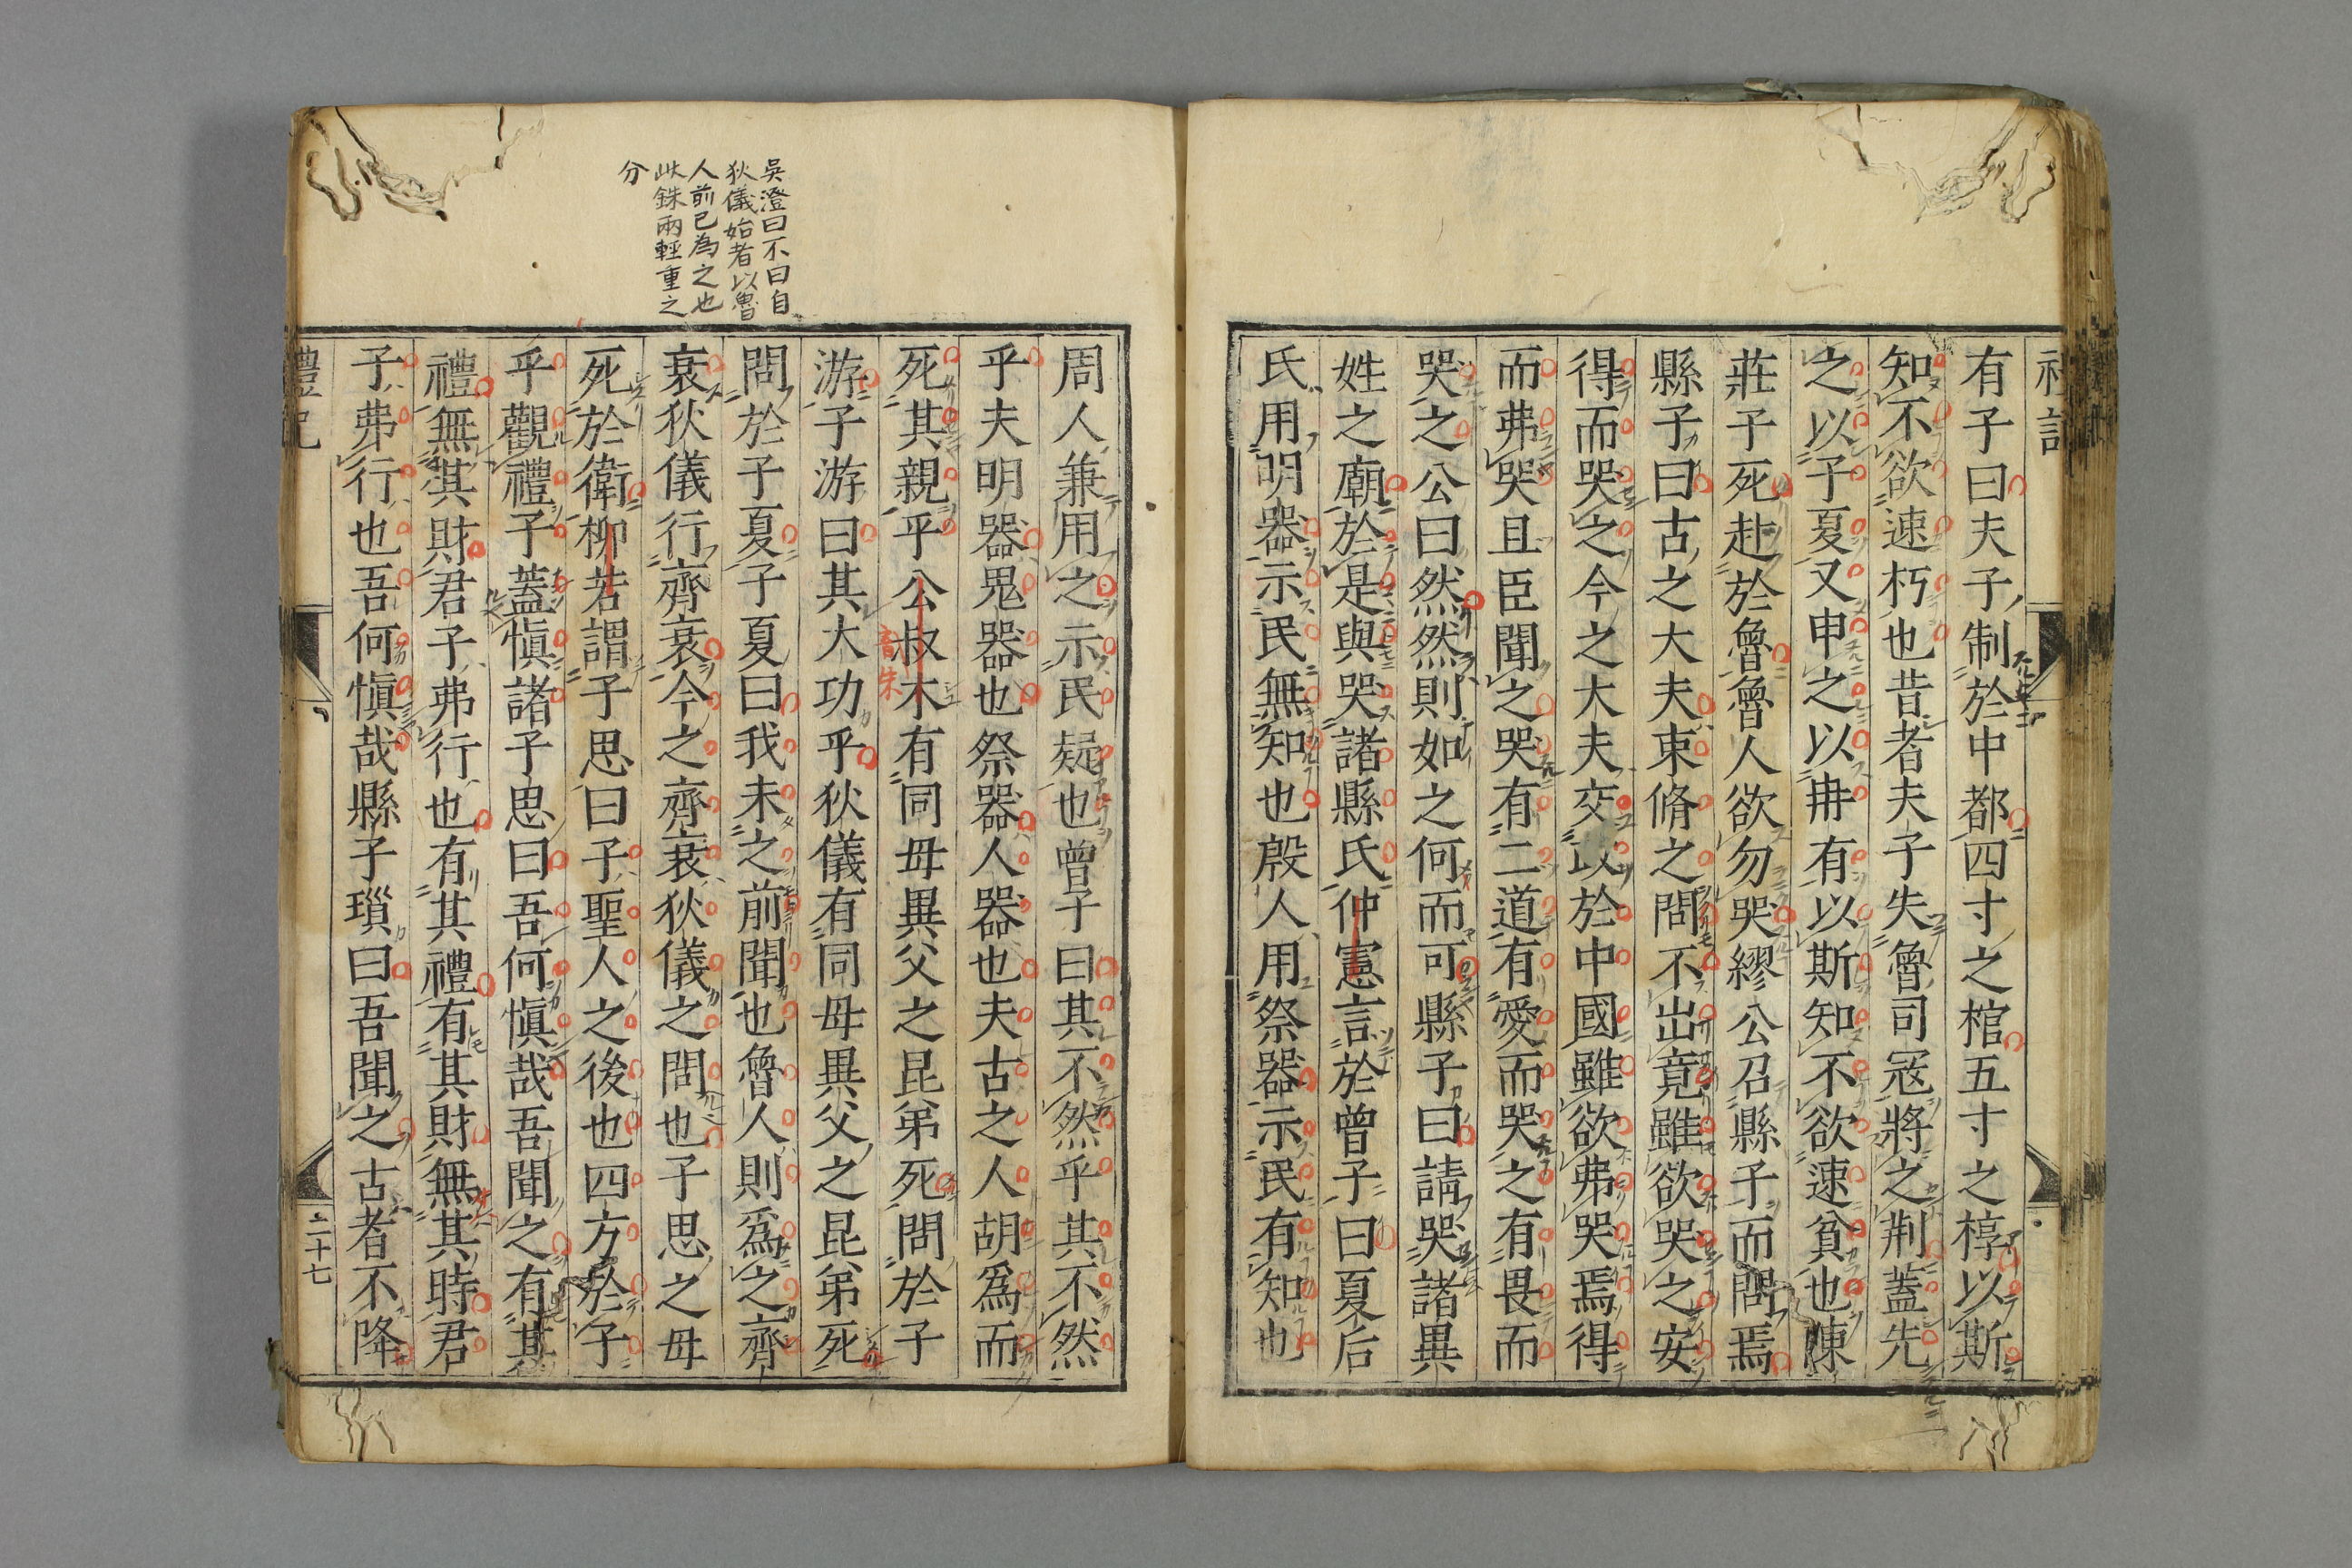 禮記
有子曰夫子制於中都四寸之棺五寸之椁以斯
知不欲速朽也昔者夫子失魯司寇將之荆蓋先
之以子夏又申之以冉有以斯知不欲速貧也陳
莊子死赴於魯魯人欲勿哭繆公召縣子而問焉
縣子曰古之大夫束脩之問不出竟雖欲哭之安
得而哭之今之大夫交政於中國雖欲弗哭焉得
而弗哭且臣聞之哭有二道有愛而哭之有畏而
哭之公曰然然則如之何而可縣子曰請哭諸異
姓之廟於是與哭諸縣氏仲憲言於曾子曰夏后
氏用明器示民無知也殷人用祭器示民有知也
吳澄曰不曰自
狄儀始者以魯
人前已為之也
此銖兩輕重之
分
周人兼用之示民疑也曾子曰其不然乎其不然
乎夫明器鬼器也祭器人器也夫古之人胡爲而
死其親乎公叔木有同母異父之昆弟死問於子
音朱
游子游曰其大功乎狄儀有同母異父之昆弟死
問於子夏子夏曰我未之前聞也魯人則爲之齊
衰狄儀行齊衰今之齊衰狄儀之問也子思之母
死於衛柳若謂子思曰子聖人之後也四方於子
乎觀禮子蓋愼諸子思曰吾何愼哉吾聞之有其
禮無其財君子弗行也有其禮有其財無其時君
子弗行也吾何愼哉縣子瑣曰吾聞之古者不降
禮記
二十七